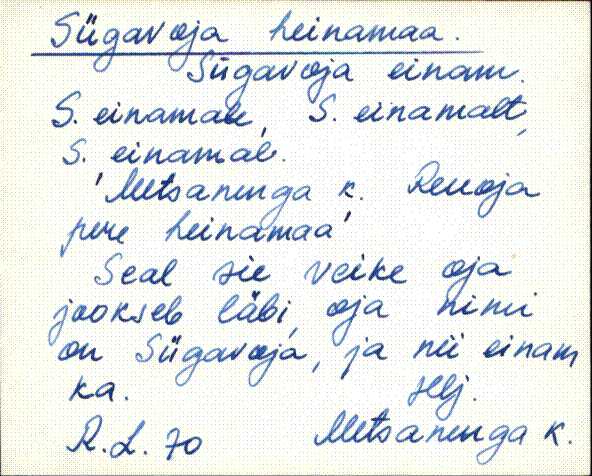 Sügavoja heinamaa.
Sügavoja einam.
S. einamale, S. einamalt,
S. einamal.
'Metsanurga k. Reuoja
pere heinamaa'
Seal sie veike oja
jookseb läbi, oja nimi
on Sügavoja, ja nii einam
ka. Hlj.
R. L. 70 Metsanurga k.